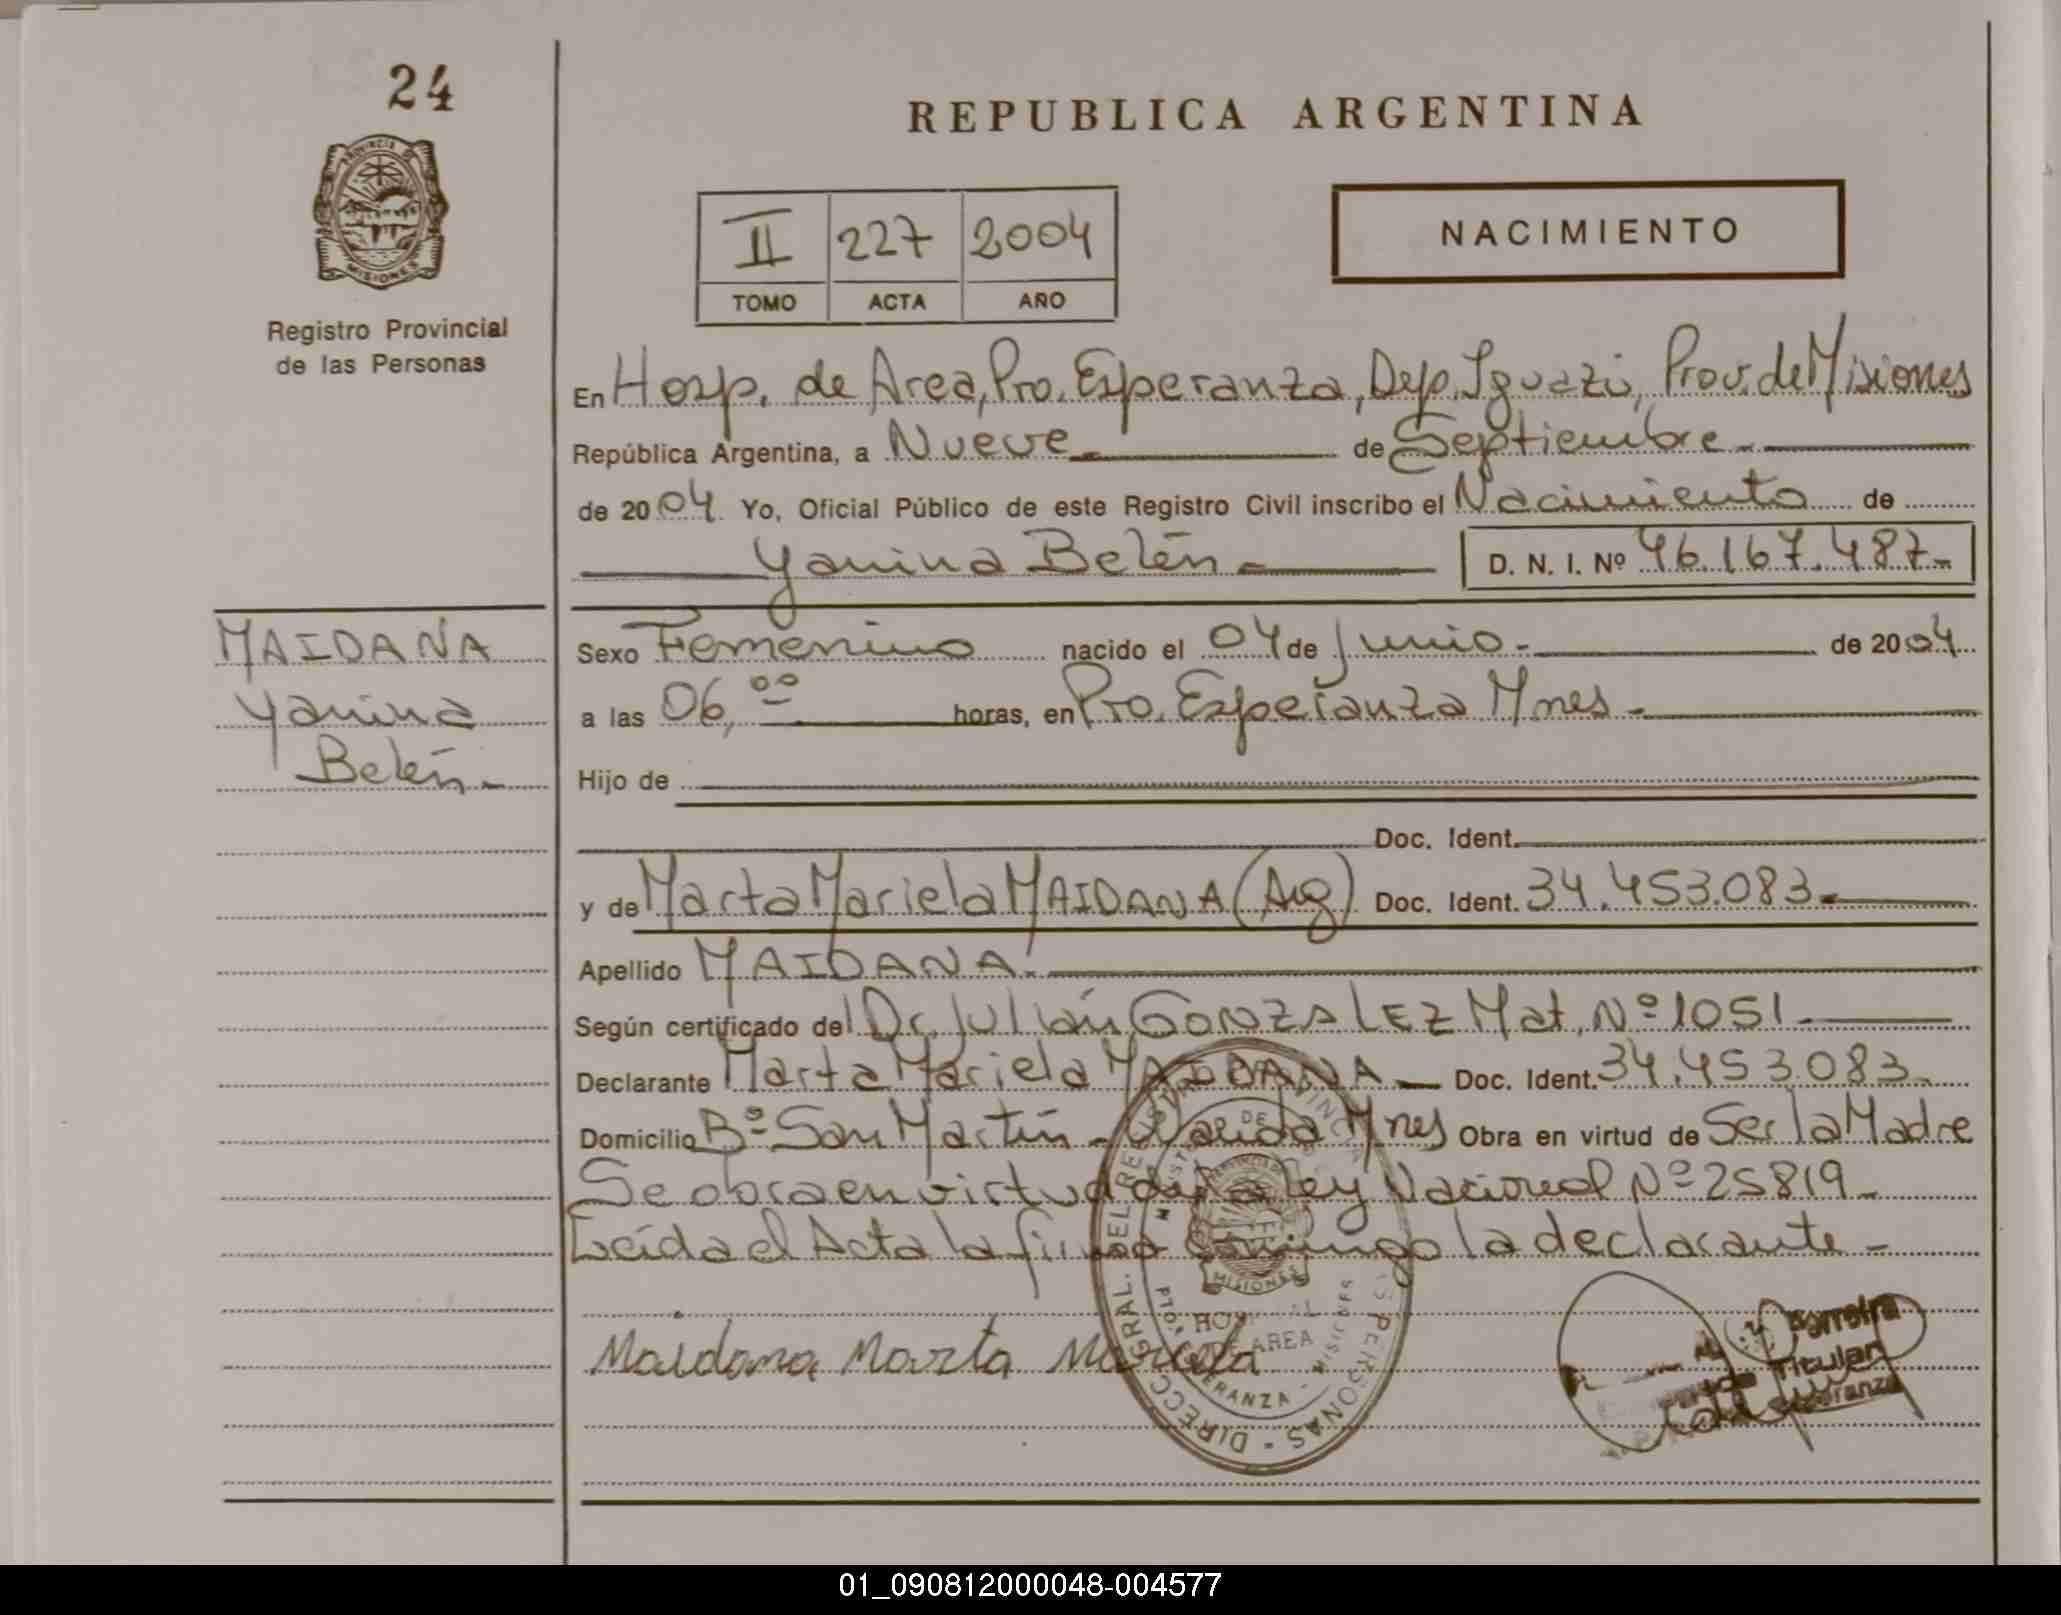 24
REPUBLICA ARGENTINA
PROVINCIA DE
MISIONES
Registro Provincial
de las Personas
II 227 2004
TOMO ACTA AÑO
NACIMIENTO
En Hosp. de Area, Pto. Esperanza, Dep. Iguazú, Prov. de Misiones
República Argentina, a Nueve de Septiembre
de 2004 Yo, Oficial Público de este Registro Civil inscribo el Nacimiento de
Yanina Belén D. N. I. Nº 46.167.487
MAIDANA
Yanina
Belén
Sexo Femenino nacido el 04 de Junio de 2004
a las 06,00 horas, en Pto. Esperanza Mnes
Hijo de
Doc. Ident.
y de Marta Mariela MAIDANA (Arg) Doc. Ident. 34.453.083
Apellido MAIDANA
Según certificado del Dr. Julián GONZALEZ Mat. Nº 1051
Declarante Marta Mariela MAIDANA Doc. Ident. 34.453.083
Domicilio Bº San Martín - Wanda Mnes Obra en virtud de Ser la Madre
Se obra en virtud de la ley Nacional Nº 25819
Leída el Acta la firma conmigo la declarante
Maidana Marta Mariela
DIRECC. GRAL. DEL REGISTRO PERSONAS
MISIONES
HOSPITAL
AREA
ESPERANZA - MISIONES
Ferreira
Titular
Esperanza
01_090812000048-004577